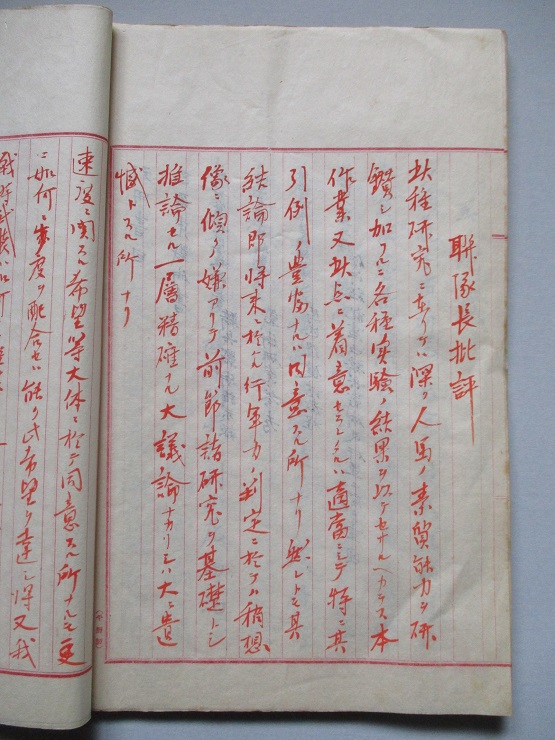 聯隊長批評
此種研究ニ在リテハ深ク人馬ノ素質能力ヲ研
鑽シ加フルニ各種実験ノ結果ヲ以テセサルヘカラス本
作業又此点ニ着意セラレ
適當ニシテ特ニ其
引例ノ豊富ナルハ同意スル所ナリ然レトモ其
結論即将来ニ於ケル行軍力ノ判定ニ於テハ稍想
像ニ傾クノ嫌アリテ前節諸研究ヲ基礎トシ
推論セル一層精確ナル大議論ナカリシハ大ニ遺
憾トスル所ナリ
速度ニ関スル希望等大体ニ於テ同意スル所ナルモ更
ニ如何ニ速度ヲ配合セハ能ク此希望ヲ達シ得又我